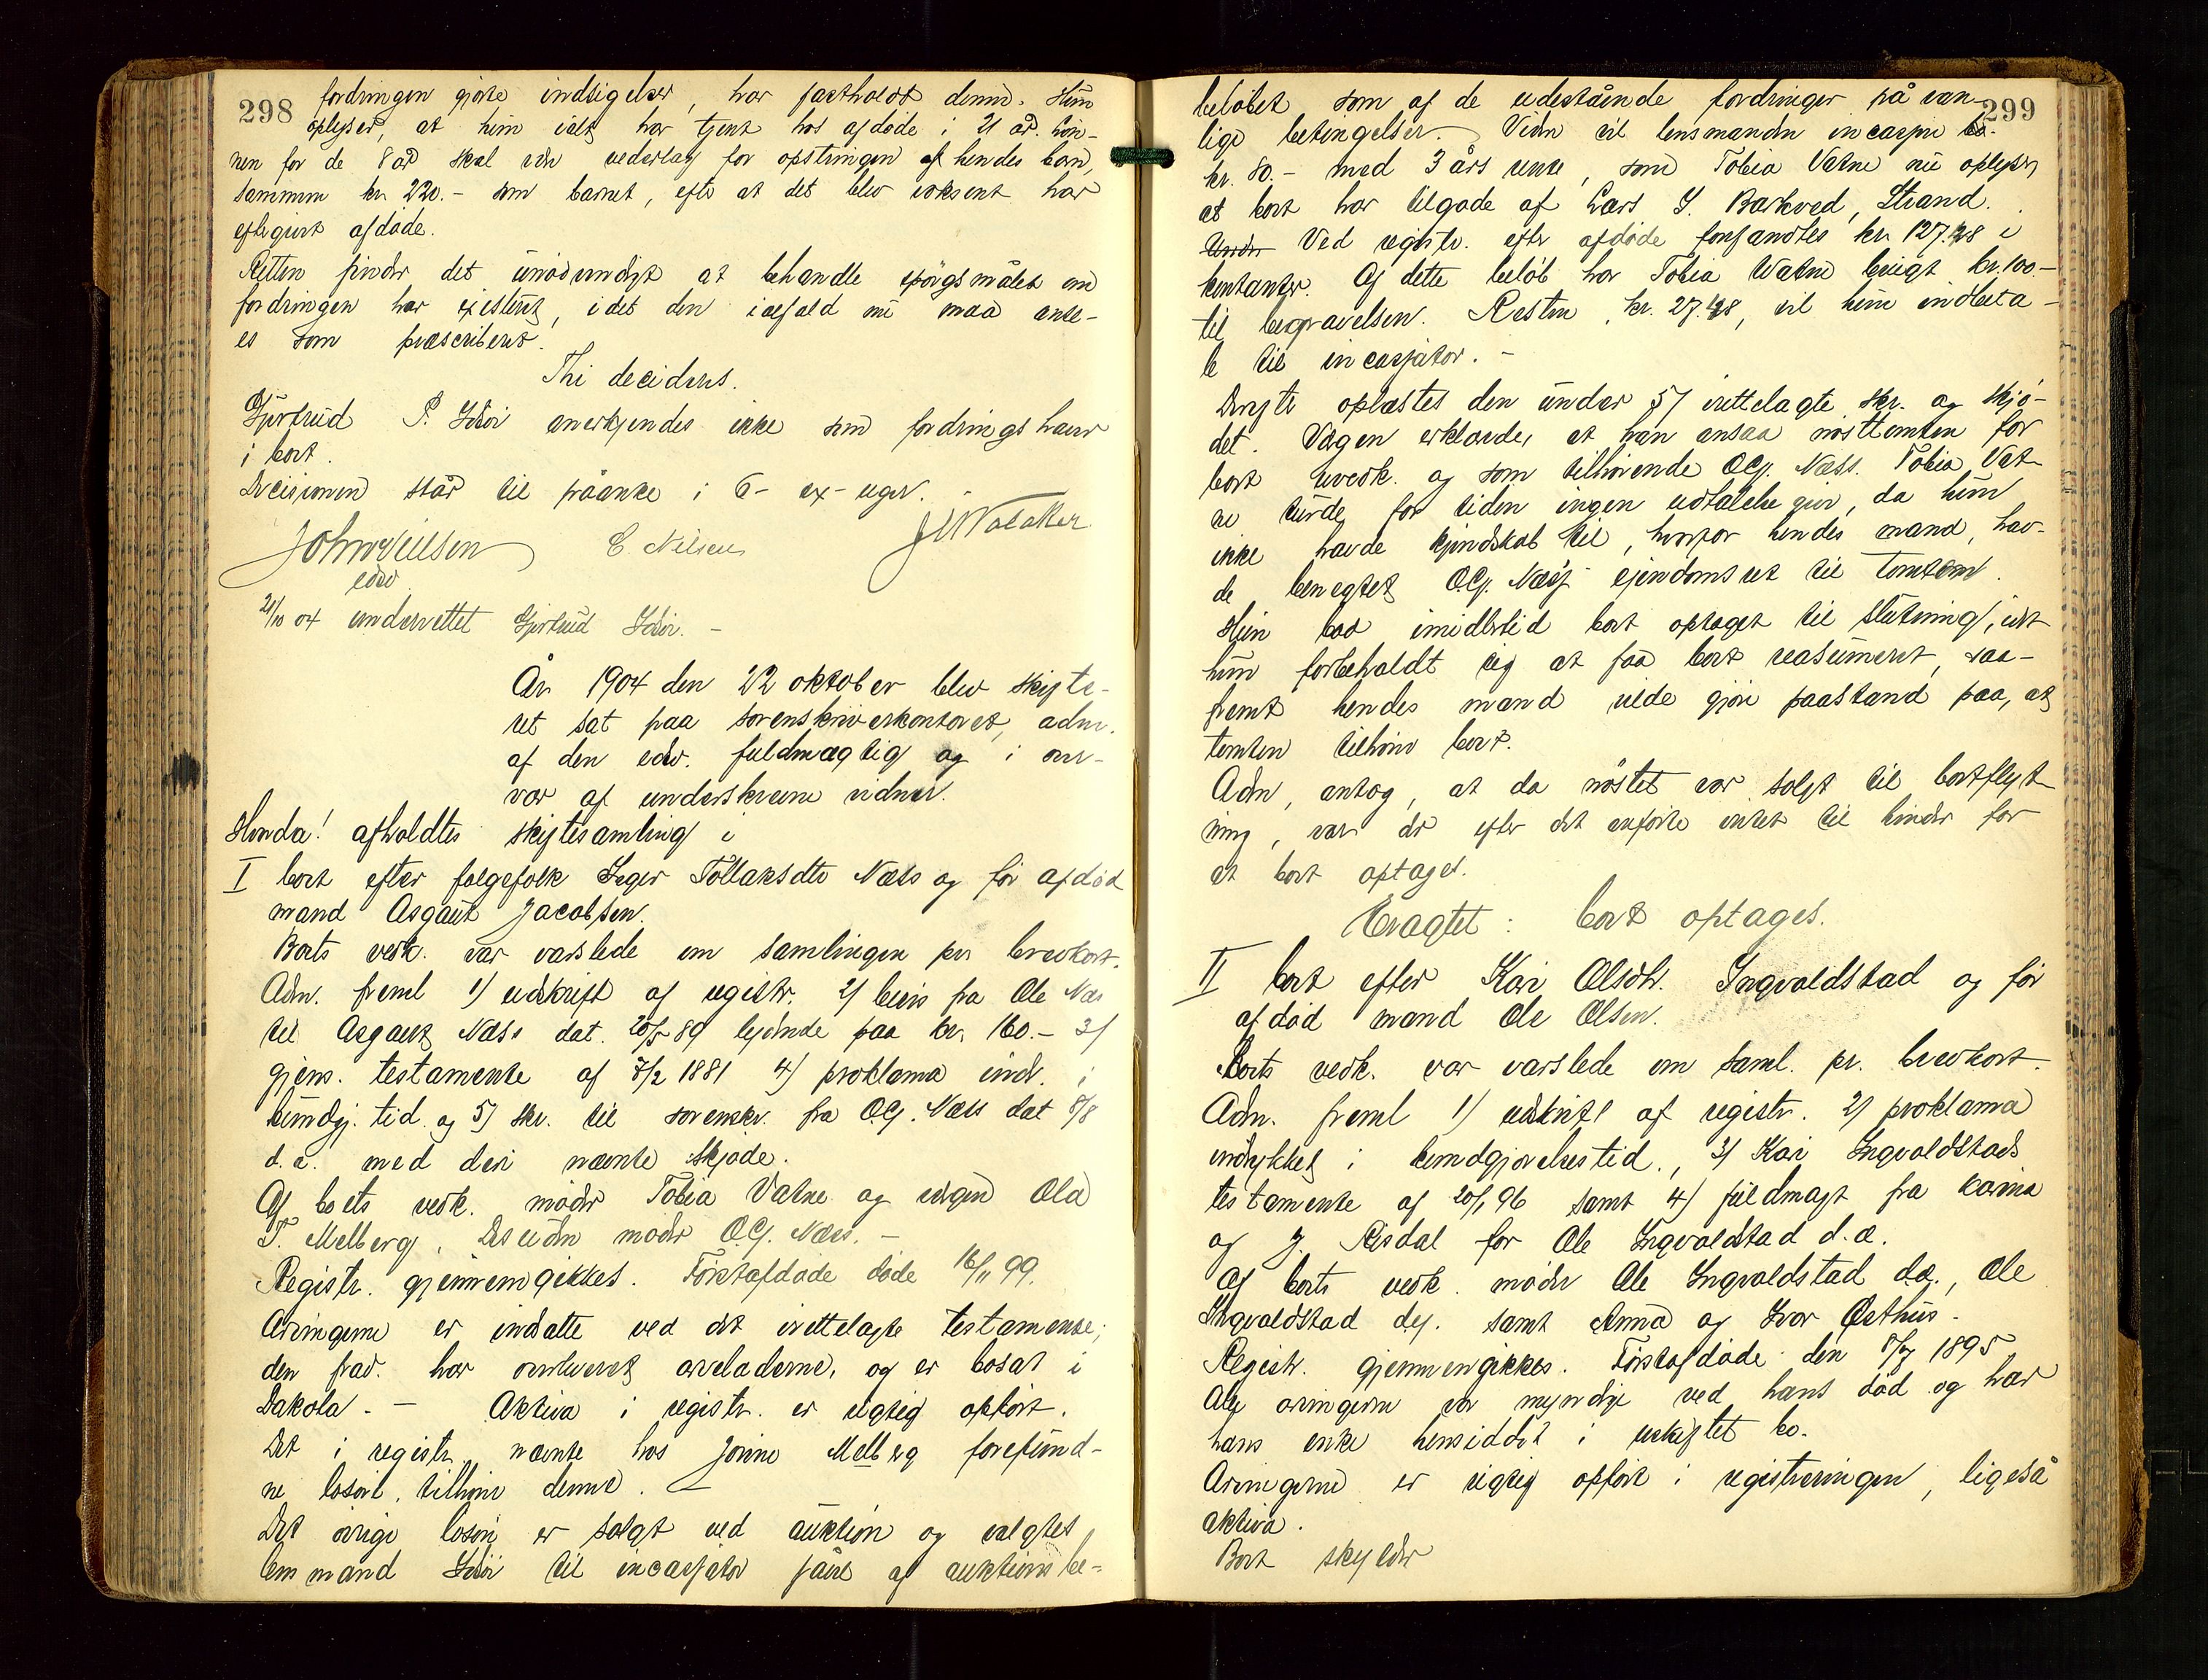 298
fordringen gjorte indsigelser, har fastholdt denne. Hun
oplyser, at hun ialt har tjent hos afdøde i 21 år. Løn-
nen for de 8 år skal være vederlag for opfostringen af hendes barn,
sammen kr. 220.- som barnet, efter at det blev voksent har
eftergivet afdøde.
Retten finder det unødvendigt at behandle spørgsmålet om
fordringen har existeret, idet den iafald nu maa anse-
es som præscriberet.
Thi decideres.
Gjertrud P. Idsøe anerkjendes ikke som fordringshaver
i boet.
Decisionen står til påanke i 6- sex- uger.
John Nielsen C. Nilsen
edsv.
21/10 04 underrettet Gjertrud Idsøe. -
År 1904 den 22 oktober blev skifte-
ret sat paa sorenskriverkontoret, adm.
af den edsv. fuldmægtig og i over-
vær af underskrevne vidner.
Hvorda! afholdtes skiftesamling i
I boet efter følgefolk Inger Tollaksdtr Næss og før afdød
mand Asgaut Jacobsen.
Boets vedk. var varslede om samlingen per brevkort.
Adm. freml 1) udskrift af registr. 2) bevis fra Ole Næs
til Asgaut Næss dat. 20/5 89 lydende paa kr. 160.- 3)
gjens. testamente af 7/2 1881 4) proklama indr. i
kundgj. tid. og 5) skr. til sorenskr. fra O.G. Næss dat 8/8
d.a. med deri nævnte skjøde.
Af boets vedk. møder Tobia Vatne og værgen Ola
T. Melberg. Desuden møder O.G. Næss. -
Registr. gjennemgikkes. Førstafdøde døde 16/11 99.
Arvingerne er indsatte ved det irettelagte testamente;
den frav. har overlevet arveladerne, og er bosat i
Dakota. - Aktiva i registr. er rigtig opført.
Det i registr. nævnte hos Jorine Melberg forefund-
ne løsøre, tilhører denne. -
Det øvrige løsøre er solgt ved auktion og valgtes
lensmand Idsøe til incassator såvel af auktionsbe-
299
beløbet som af de udestående fordringer på van-
lige betingelser. Viden vil lensmanden incassere
kr. 80.- med 3 års rente, som Tobia Vatne nu oplyser,
at boet har tilgode af Lars S. Barkved, Strand.
Ved registr. efter afdøde forefandtes kr. 127.28 i
kontanter. Af dette beløb har Tobia Vatne brugt kr. 100.-
til begravelsen. Resten, kr. 27.28, vil hun indbeta-
le til incassator. -
Derefter oplæstes den under 5) irettelagte skr. og skjø-
det. Værgen erklærede, at han ansaa nøsttomten for
boet uvedk. og som tilhørende O.G. Næss. Tobia Vat-
ne turde for tiden ingen udtalelse give, da hun
ikke havde kjendskab til, hvorfor hendes mand, hav-
de benegtet O.G. Næss' eiendomsret til tomten.
Hun bad imidlertid boet optaget til slutning, idet
hun forbeholdt sig at faa boet reasumeret, saa-
fremt hendes mand vilde gjøre paastand paa, at
tomten tilhører boet.
Adm. antog, at da nøstet var solgt til bortflyt-
ning, var der efter det anførte intet til hinder for
at boet optages.
Eragtet: boet optages.
II boet efter Kari Olsdtr. Ingvaldstad og før
afdød mand Ole Olsen.
Boets vedk. var varslede om saml. pr. brevkort.
Adm. freml 1) udskrift af registr. 2) proklama
indrykket i kundgjørelsestid., 3) Kari Ingvaldstads
testamente af 20/1 96 samt 4) fuldmagt fra Karina
og J. Risdal for Ole Ingvaldstad d.æ.
Af boets vedk. møder Ole Ingvaldstad d.æ., Ole
Ingvaldstad d.y. samt Anna og Ivar Østhus.
Registr. gjennemgikkes. Førstafdøde den 8/7 1895.
Alle arvingerne var myndige ved hans død og har
hans enke hensiddet i uskiftet bo.
Arvingerne er rigtig opført i registreringen, ligeså
aktiva.
Boet skylder